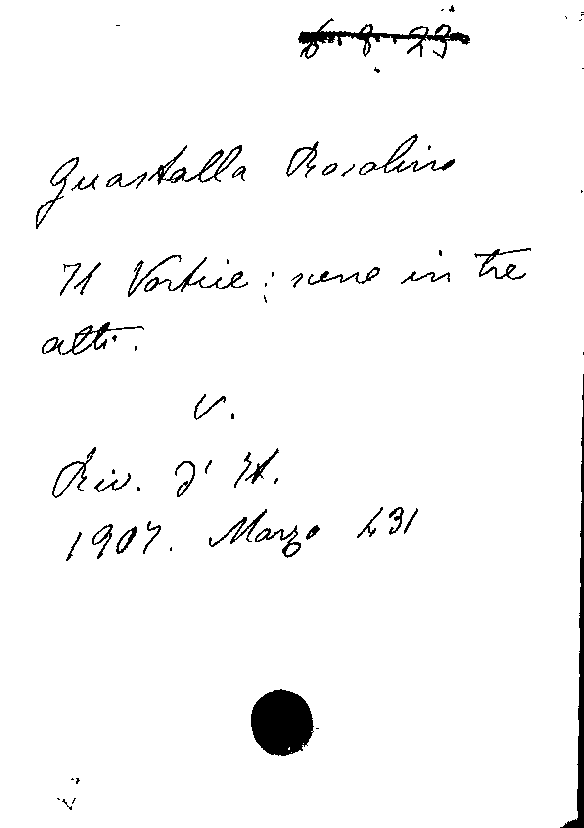 6.8.23
Guastalla Rosolino
Il Vortice: scene in tre
atti.
v.
Riv. d'It.
1907. Marzo 431